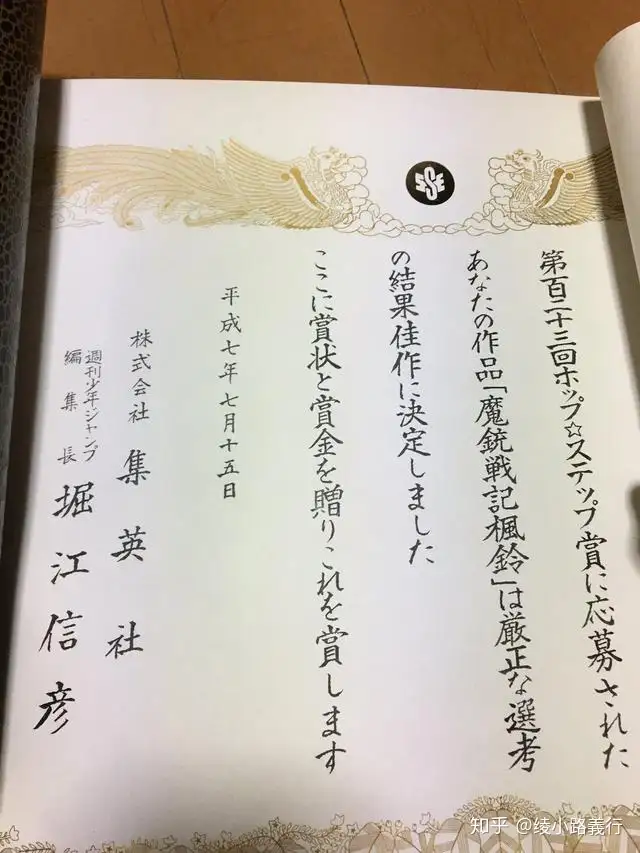 第百二十三回ホップ☆ステップ賞に応募された
あなたの作品「魔銃戦記楓鈴」は厳正な選考
の結果佳作に決定しました
ここに賞状と賞金を贈りこれを賞します
平成七年七月十五日
株式会社 集英社
週刊少年ジャンプ
編集長 堀江信彦
知乎 @绫小路義行